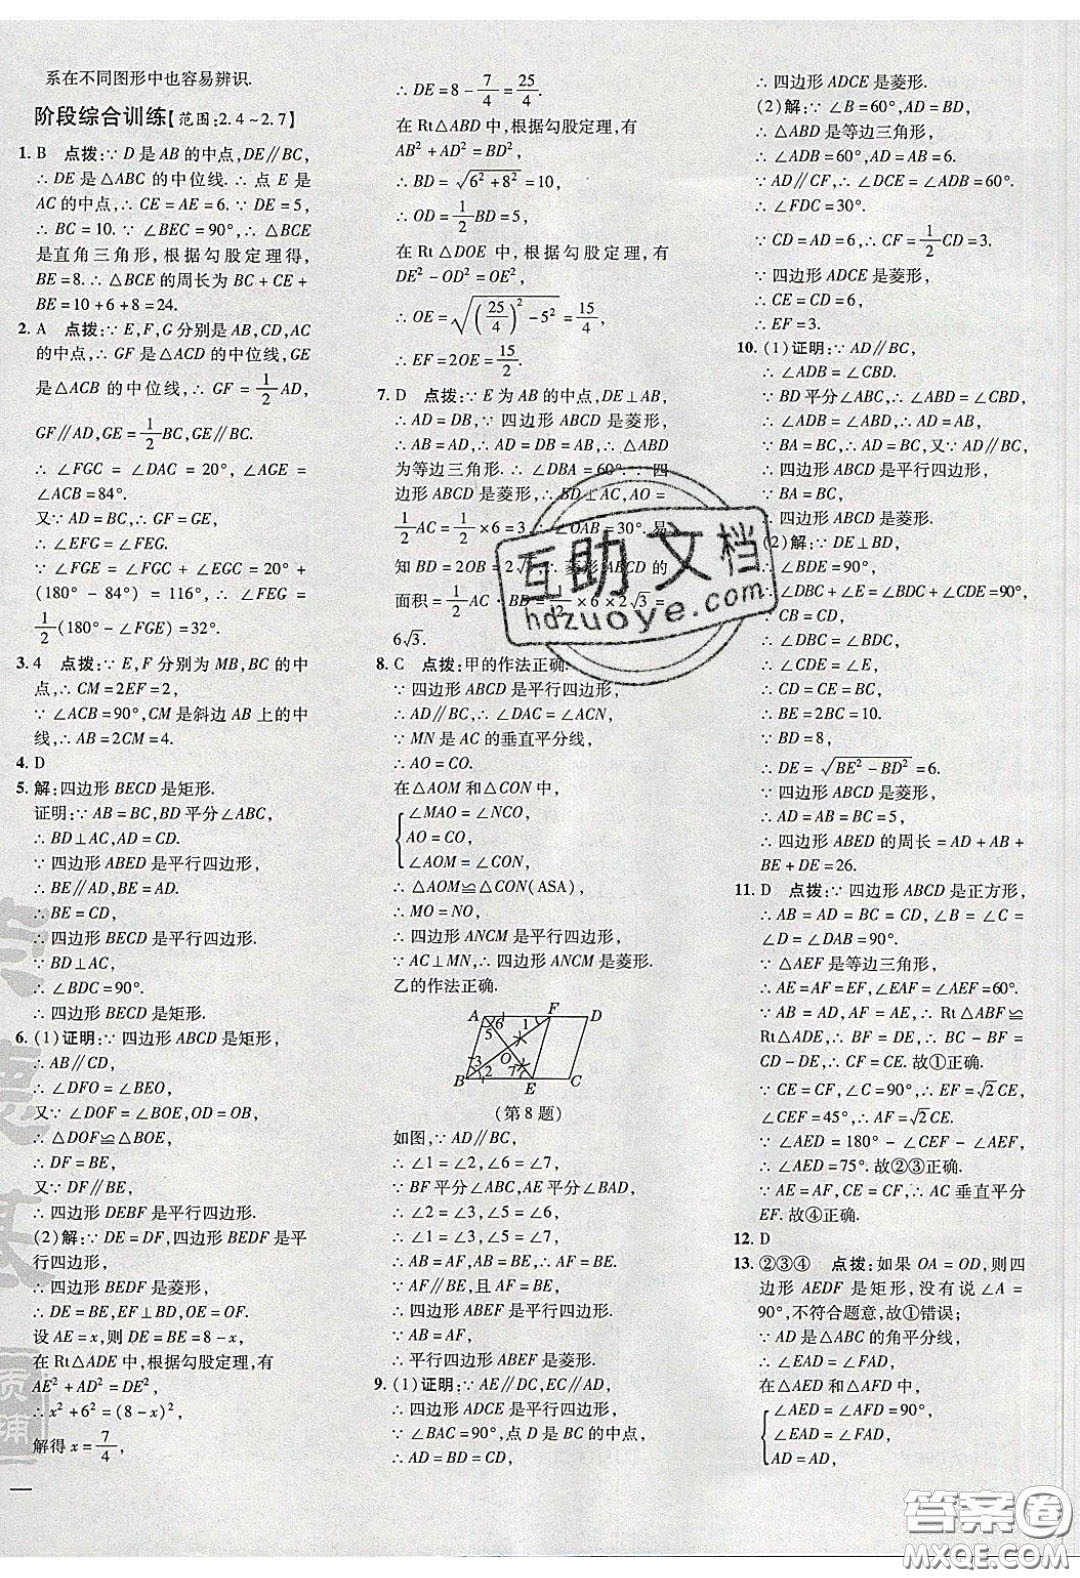 系在不同图形中也容易辨识.
阶段综合训练【范围:2.4~2.7】
1. B 点拨:∵ D 是 AB 的中点,DE∥BC,
∴ DE 是△ABC 的中位线.∴ 点 E 是
AC 的中点,∴ CE = AE = 6. ∵ DE = 5,
∴ BC = 10. ∵ ∠BEC = 90°,∴ △BCE
是直角三角形,根据勾股定理得,
BE = 8. ∴ △BCE 的周长为 BC + CE +
BE = 10 + 6 + 8 = 24.
2. A 点拨:∵ E,F,G 分别是 AB,CD,AC
的中点,∴ GF 是△ACD 的中位线,GE
是△ACB 的中位线,∴ GF = 1/2 AD,
GF∥AD,GE = 1/2 BC,GE∥BC.
∴ ∠FGC = ∠DAC = 20°,∠AGE =
∠ACB = 84°.
又∵ AD = BC,∴ GF = GE,
∴ ∠EFG = ∠FEG.
∵ ∠FGE = ∠FGC + ∠EGC = 20° +
(180° - 84°) = 116°,∴ ∠FEG =
1/2 (180° - ∠FGE) = 32°.
3. 4 点拨:∵ E,F 分别为 MB,BC 的中
点,∴ CM = 2EF = 2,
∵ ∠ACB = 90°,CM 是斜边 AB 上的中
线,∴ AB = 2CM = 4.
4. D
5. 解:四边形 BECD 是矩形.
证明:∵ AB = BC,BD 平分∠ABC,
∴ BD⊥AC,AD = CD.
∵ 四边形 ABED 是平行四边形,
∴ BE∥AD,BE = AD,
∴ BE = CD,
∴ 四边形 BECD 是平行四边形.
∵ BD⊥AC,
∴ ∠BDC = 90°.
∴ 四边形 BECD 是矩形.
6. (1)证明:∵ 四边形 ABCD 是矩形,
∴ AB∥CD,
∴ ∠DFO = ∠BEO,
又∵ ∠DOF = ∠BOE,OD = OB,
∴ △DOF≌△BOE,
∴ DF = BE,
又∵ DF∥BE,
∴ 四边形 DEBF 是平行四边形.
(2)解:∵ DE = DF,四边形 BEDF 是平
行四边形,
∴ 四边形 BEDF 是菱形,
∴ DE = BE,EF⊥BD,OE = OF.
设 AE = x,则 DE = BE = 8 - x,
在 Rt△ADE 中,根据勾股定理,有
AE² + AD² = DE²,
∴ x² + 6² = (8 - x)²,
解得 x = 7/4,
∴ DE = 8 - 7/4 = 25/4.
在 Rt△ABD 中,根据勾股定理,有
AB² + AD² = BD²,
∴ BD = √(6² + 8²) = 10,
∴ OD = 1/2 BD = 5,
在 Rt△DOE 中,根据勾股定理,有
DE² - OD² = OE²,
∴ OE = √((25/4)² - 5²) = 15/4,
∴ EF = 2OE = 15/2.
7. D 点拨:∵ E 为 AB 的中点,DE⊥AB,
∴ AD = DB,∵ 四边形 ABCD 是菱形,
∴ AB = AD,∴ AD = DB = AB,∴ △ABD
为等边三角形.∴ ∠DBA = 60°.∵ 四
边形 ABCD 是菱形,∴ BD⊥AC,AO =
1/2 AC = 1/2 × 6 = 3,∴ ∠OAB = 30°.易
知 BD = 2OB = 2√3,∴ 菱形 ABCD 的
面积 = 1/2 AC · BD = 1/2 × 6 × 2√3 =
6√3.
8. C 点拨:甲的作法正确.
∵ 四边形 ABCD 是平行四边形,
∴ AD∥BC,∴ ∠DAC = ∠ACN,
∵ MN 是 AC 的垂直平分线,
∴ AO = CO.
在△AOM 和△CON 中,
∠MAO = ∠NCO,
AO = CO,
∠AOM = ∠CON,
∴ △AOM≌△CON(ASA),
∴ MO = NO,
∴ 四边形 ANCM 是平行四边形,
∵ AC⊥MN,∴ 四边形 ANCM 是菱形.
乙的作法正确.
A 6 1 F D
5
O
3
B 2 7 E C
(第 8 题)
如图,∵ AD∥BC,
∴ ∠1 = ∠2,∠6 = ∠7,
∵ BF 平分∠ABC,AE 平分∠BAD,
∴ ∠2 = ∠3,∠5 = ∠6,
∴ ∠1 = ∠3,∠5 = ∠7,
∴ AB = AF,AB = BE,
∴ AF = BE.
∵ AF∥BE,且 AF = BE,
∴ 四边形 ABEF 是平行四边形.
∵ AB = AF,
∴ 平行四边形 ABEF 是菱形.
9. (1)证明:∵ AE∥DC,EC∥AD,
∴ 四边形 ADCE 是平行四边形,
∵ ∠BAC = 90°,点 D 是 BC 的中点,
∴ AD = BD = CD,
∴ 四边形 ADCE 是菱形.
(2)解:∵ ∠B = 60°,AD = BD,
∴ △ABD 是等边三角形,
∴ ∠ADB = 60°,AD = AB = 6,
∵ AD∥CF,∴ ∠DCE = ∠ADB = 60°.
∴ ∠FDC = 30°.
∵ CD = AD = 6,∴ CF = 1/2 CD = 3.
∵ 四边形 ADCE 是菱形,
∴ CE = CD = 6,
∴ EF = 3.
10. (1)证明:∵ AD∥BC,
∴ ∠ADB = ∠CBD.
∵ BD 平分∠ABC,∴ ∠ABD = ∠CBD,
∴ ∠ADB = ∠ABD,∴ AD = AB,
∵ BA = BC,∴ AD = BC,又∵ AD∥BC,
∴ 四边形 ABCD 是平行四边形,
∵ BA = BC,
∴ 四边形 ABCD 是菱形.
(2)解:∵ DE⊥BD,
∴ ∠BDE = 90°,
∴ ∠DBC + ∠E = ∠BDC + ∠CDE = 90°,
∵ CB = CD,
∴ ∠DBC = ∠BDC,
∴ ∠CDE = ∠E,
∴ CD = CE = BC,
∴ BE = 2BC = 10.
∵ BD = 8,
∴ DE = √(BE² - BD²) = 6.
∵ 四边形 ABCD 是菱形,
∴ AD = AB = BC = 5,
∴ 四边形 ABED 的周长 = AD + AB +
BE + DE = 26.
11. D 点拨:∵ 四边形 ABCD 是正方形,
∴ AB = AD = BC = CD,∠B = ∠C =
∠D = ∠DAB = 90°.
∵ △AEF 是等边三角形,
∴ AE = AF = EF,∠AEF = 60°.
∵ AD = AB,AF = AE,∴ Rt △ABF≌
Rt△ADE,∴ BF = DE,∴ BC - BF =
CD - DE,∴ CE = CF.故①正确.
∵ CE = CF,∠C = 90°,∴ EF = √2CE,
∠CEF = 45°,∴ AF = √2CE.
∵ ∠AED = 180° - ∠CEF - ∠AEF,
∴ ∠AED = 75°.故②③正确.
∵ AE = AF,CE = CF,∴ AC 垂直平分
EF.故④正确.
12. D
13. ②③④ 点拨:如果 OA = OD,则四
边形 AEDF 是矩形,没有说∠A =
90°,不符合题意,故①错误;
∵ AD 是△ABC 的角平分线,
∴ ∠EAD = ∠FAD,
在△AED 和△AFD 中,
∠AED = ∠AFD = 90°,
∠EAD = ∠FAD,
AD = AD,
互助文档
hdzuoye.com
答案圈
MXQE.COM